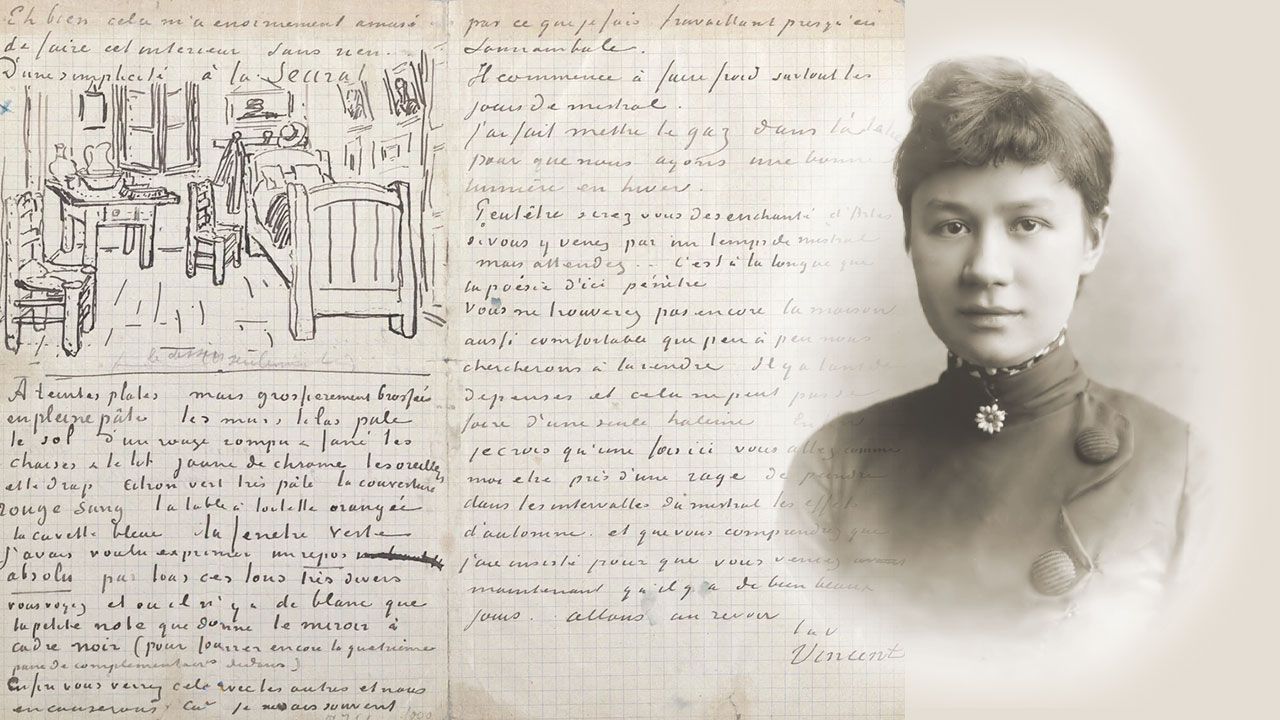 Eh bien cela m'a enormement amusé
de faire cet interieur sans rien.
D'une simplicité à la Seurat
A teintes plates mais grossierement brossées
en pleine pâte les murs lilas pale
le sol d'un rouge rompu & fané les
chaises & le lit jaune de chrome les oreillers
et le drap citron vert très pâle la couverture
rouge sang la table à toilette orangée
la cuvette bleue la fenetre verte
J'avais voulu exprimer un repos
absolu par tous ces tons très divers
vous voyez et ou il n'y a de blanc que
la petite note que donne le miroir à
cadre noir (pour fourrer encore la quatrième
paire de complementaires dedans)
Enfin vous verrez cela avec les autres et nous
en causerons car je ne sais souvent
pas ce que je fais travaillant presqu'en
somnambule.
Il commence à faire froid surtout les
jours de mistral.
J'ai fait mettre le gaz dans
pour que nous ayons une bonne
lumière en hiver.
Peutêtre serez vous desenchanté d'Arles
si vous y venez par un temps de mistral
mais attendez .. C'est à la longue que
la poésie d'ici pénètre
Vous ne trouverez pas encore la maison
aussi comfortable que peu à peu nous
chercherons à la rendre. Il y a tant de
depenses et cela ne peut pas se
faire d'une seule haleine.
je crois qu'une fois ici vous allez comme
moi etre pris d'une rage de peindre
dans les intervalles du mistral les effets
d'automne. et que vous comprendrez que
j'aie insisté pour que vous veniez
maintenant qu'il y a de bien beaux
jours. allons au revoir
Vincent